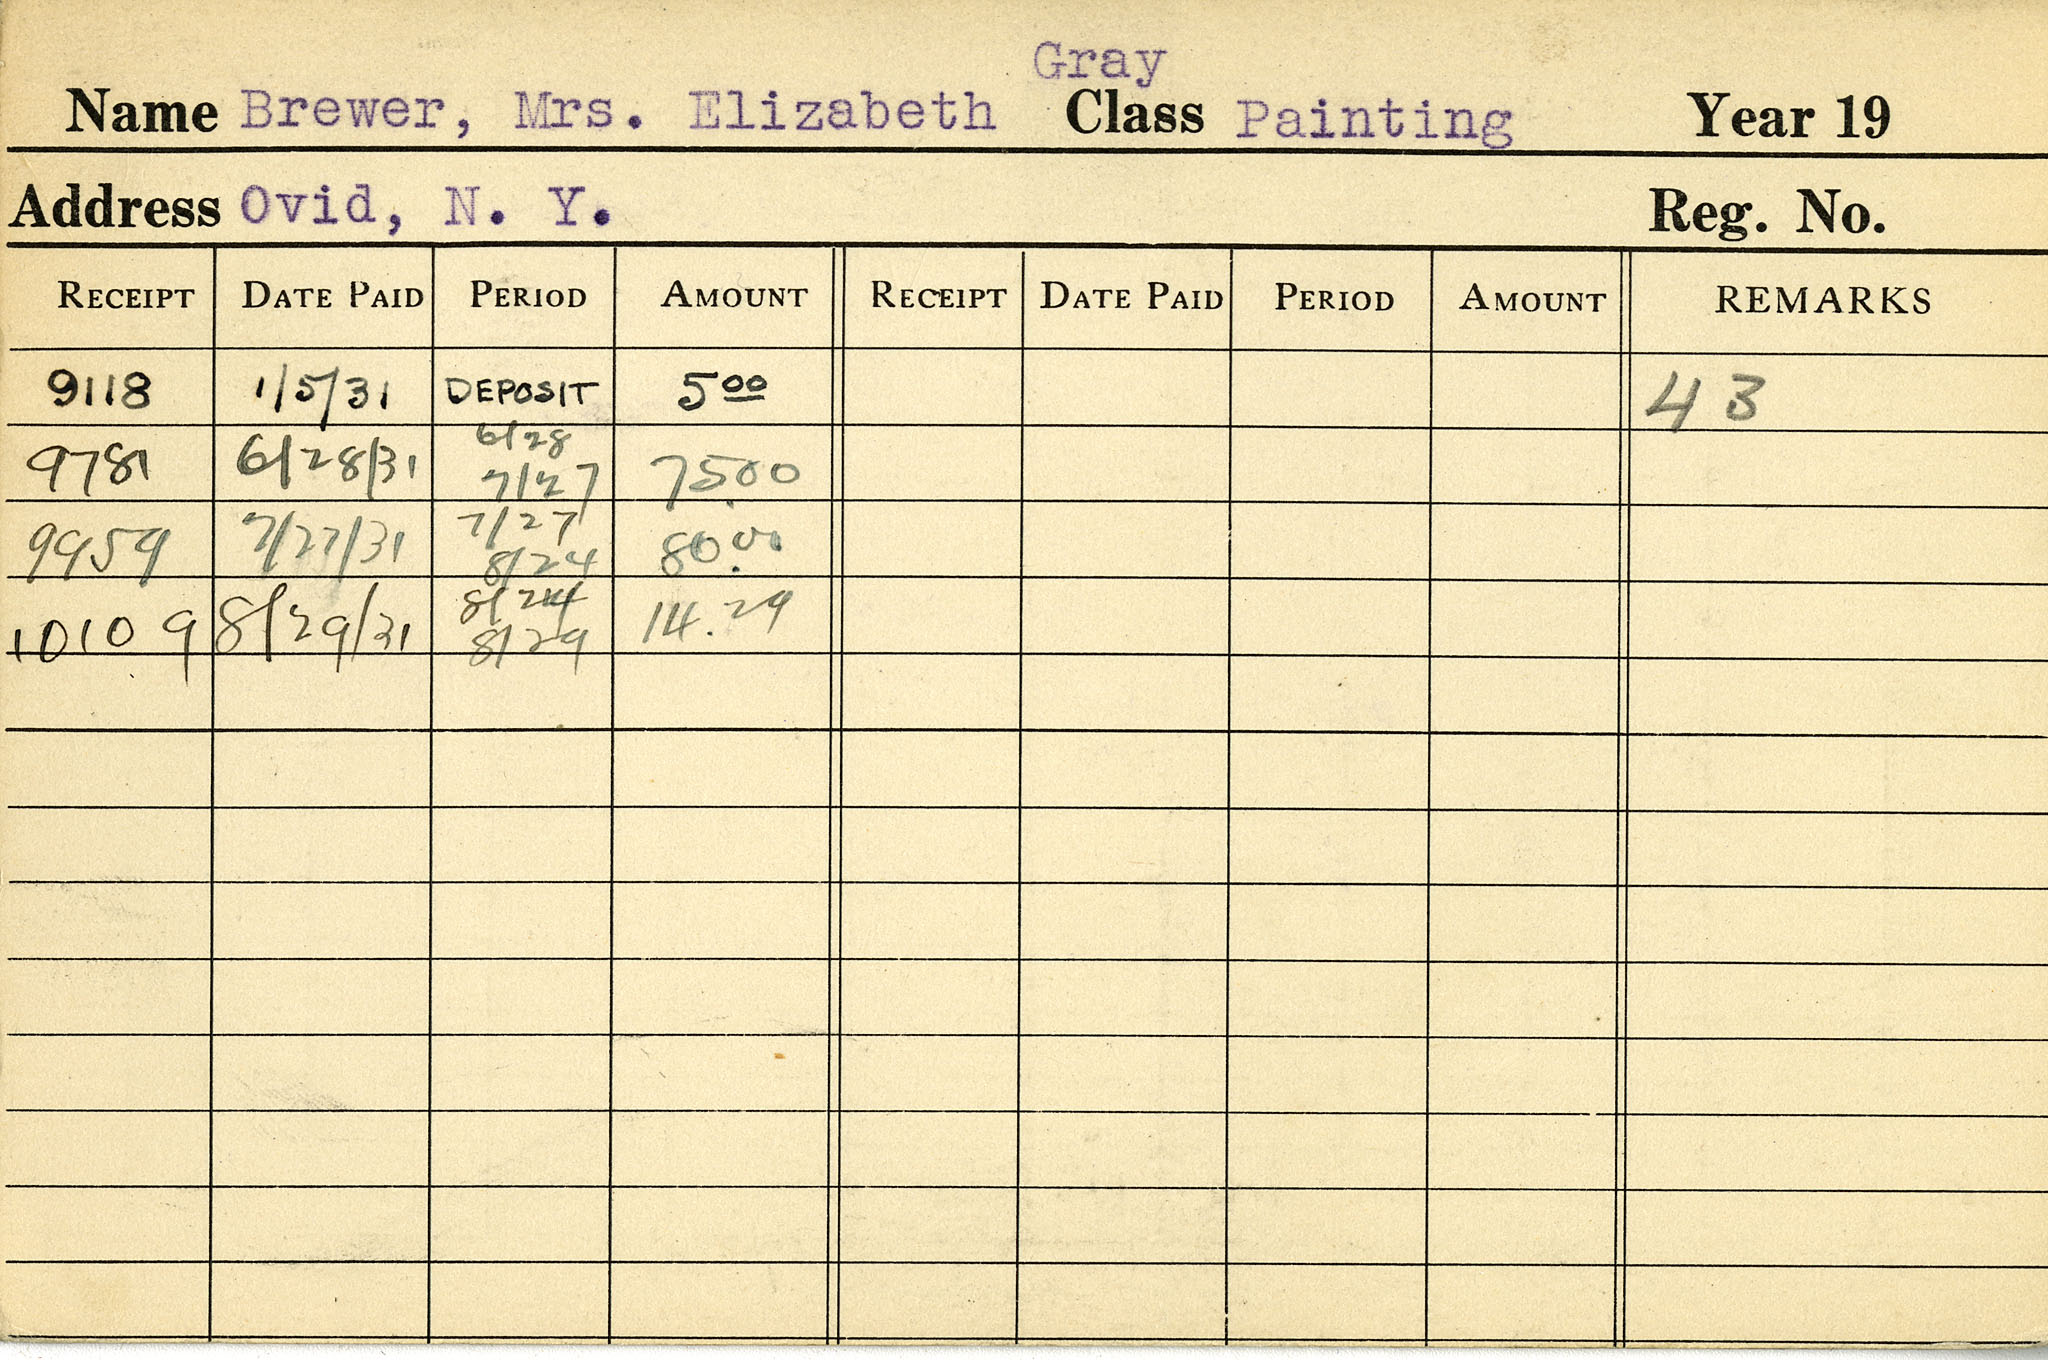 Gray
Name Brewer, Mrs. Elizabeth Class Painting Year 19
Address Ovid, N. Y. Reg. No.
RECEIPT DATE PAID PERIOD AMOUNT RECEIPT DATE PAID PERIOD AMOUNT REMARKS
9118 1/5/31 DEPOSIT 5 00 43
9781 6/28/31 6/28 7/27 75.00
9959 7/27/31 7/27 8/24 80.00
10109 8/29/31 8/24 8/29 14.29